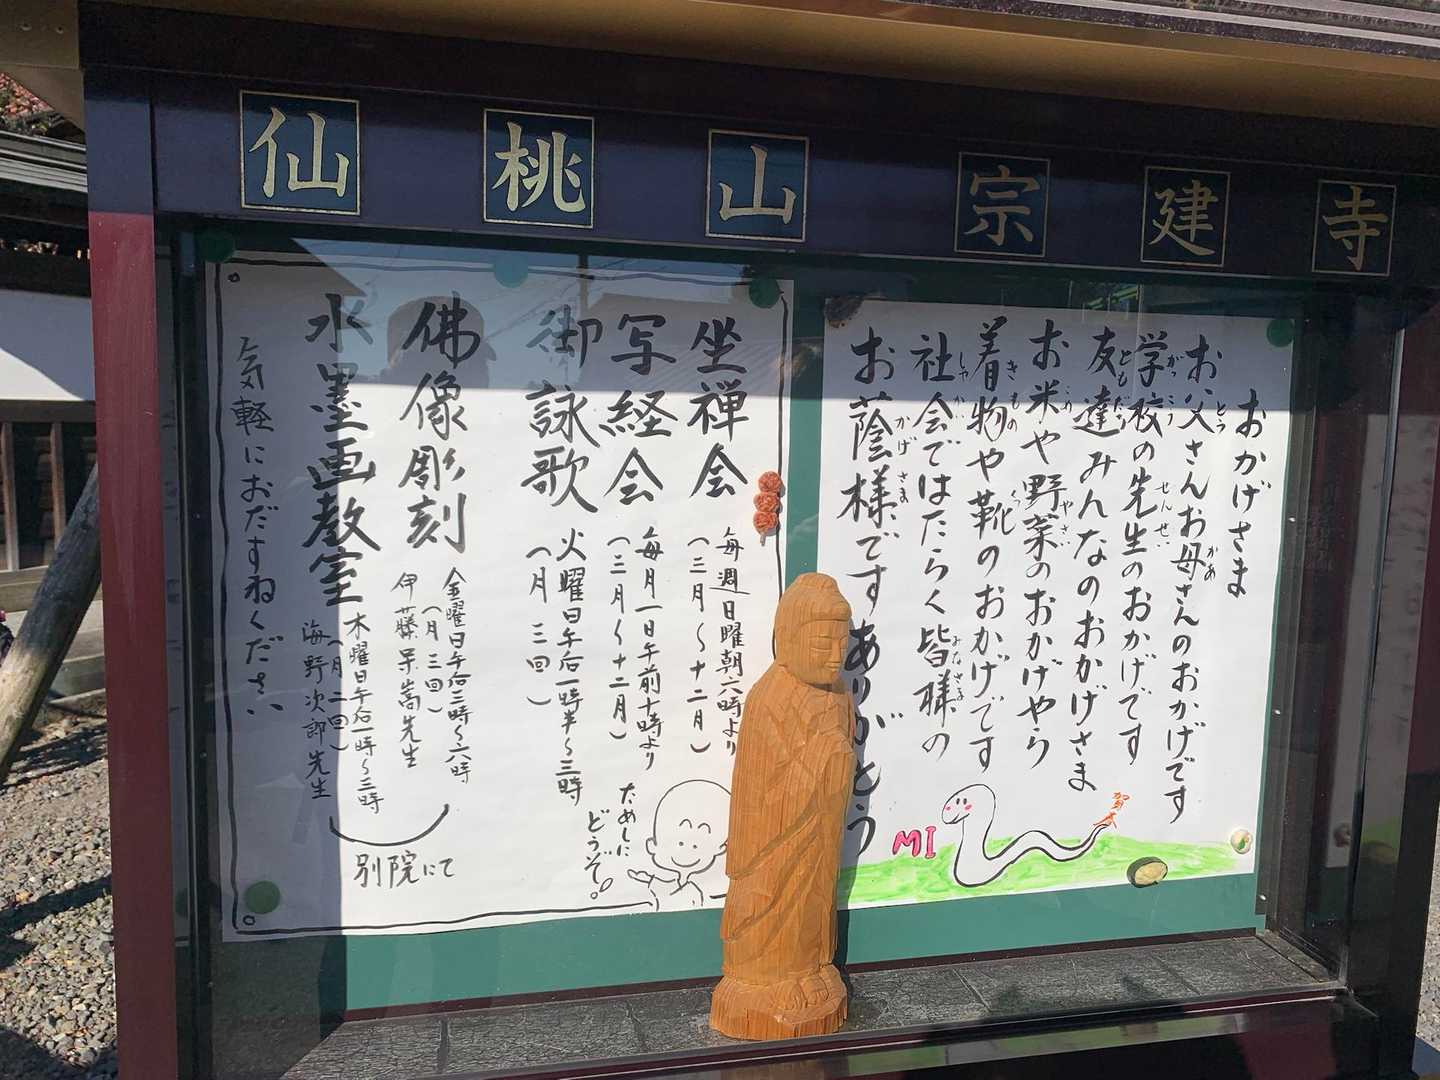 仙桃山 宗建寺
おかげさま
お父さんお母さんのおかげです
とう
かあ
学校の先生のおかげです
がっこう
せんせい
友達みんなのおかげさま
ともだち
お米や野菜のおかげやら
こめ
やさい
着物や靴のおかげです
きもの
くつ
社会ではたらく皆様の
しゃかい
みなさま
お蔭様です ありがとう
かげさま
MI
賀春
坐禅会
毎週日曜朝六時より
(三月〜十二月)
写経会
毎月一日午前十時より
(三月〜十二月)
御詠歌
火曜日午后一時半〜三時
(月三回)
ためしに
どうぞ。
佛像彫刻
金曜日午后三時〜六時
(月三回)
伊藤杲嵩先生
水墨画教室
木曜日午后一時〜三時
(月二回)
海野次郎先生
別院にて
気軽におだすねください